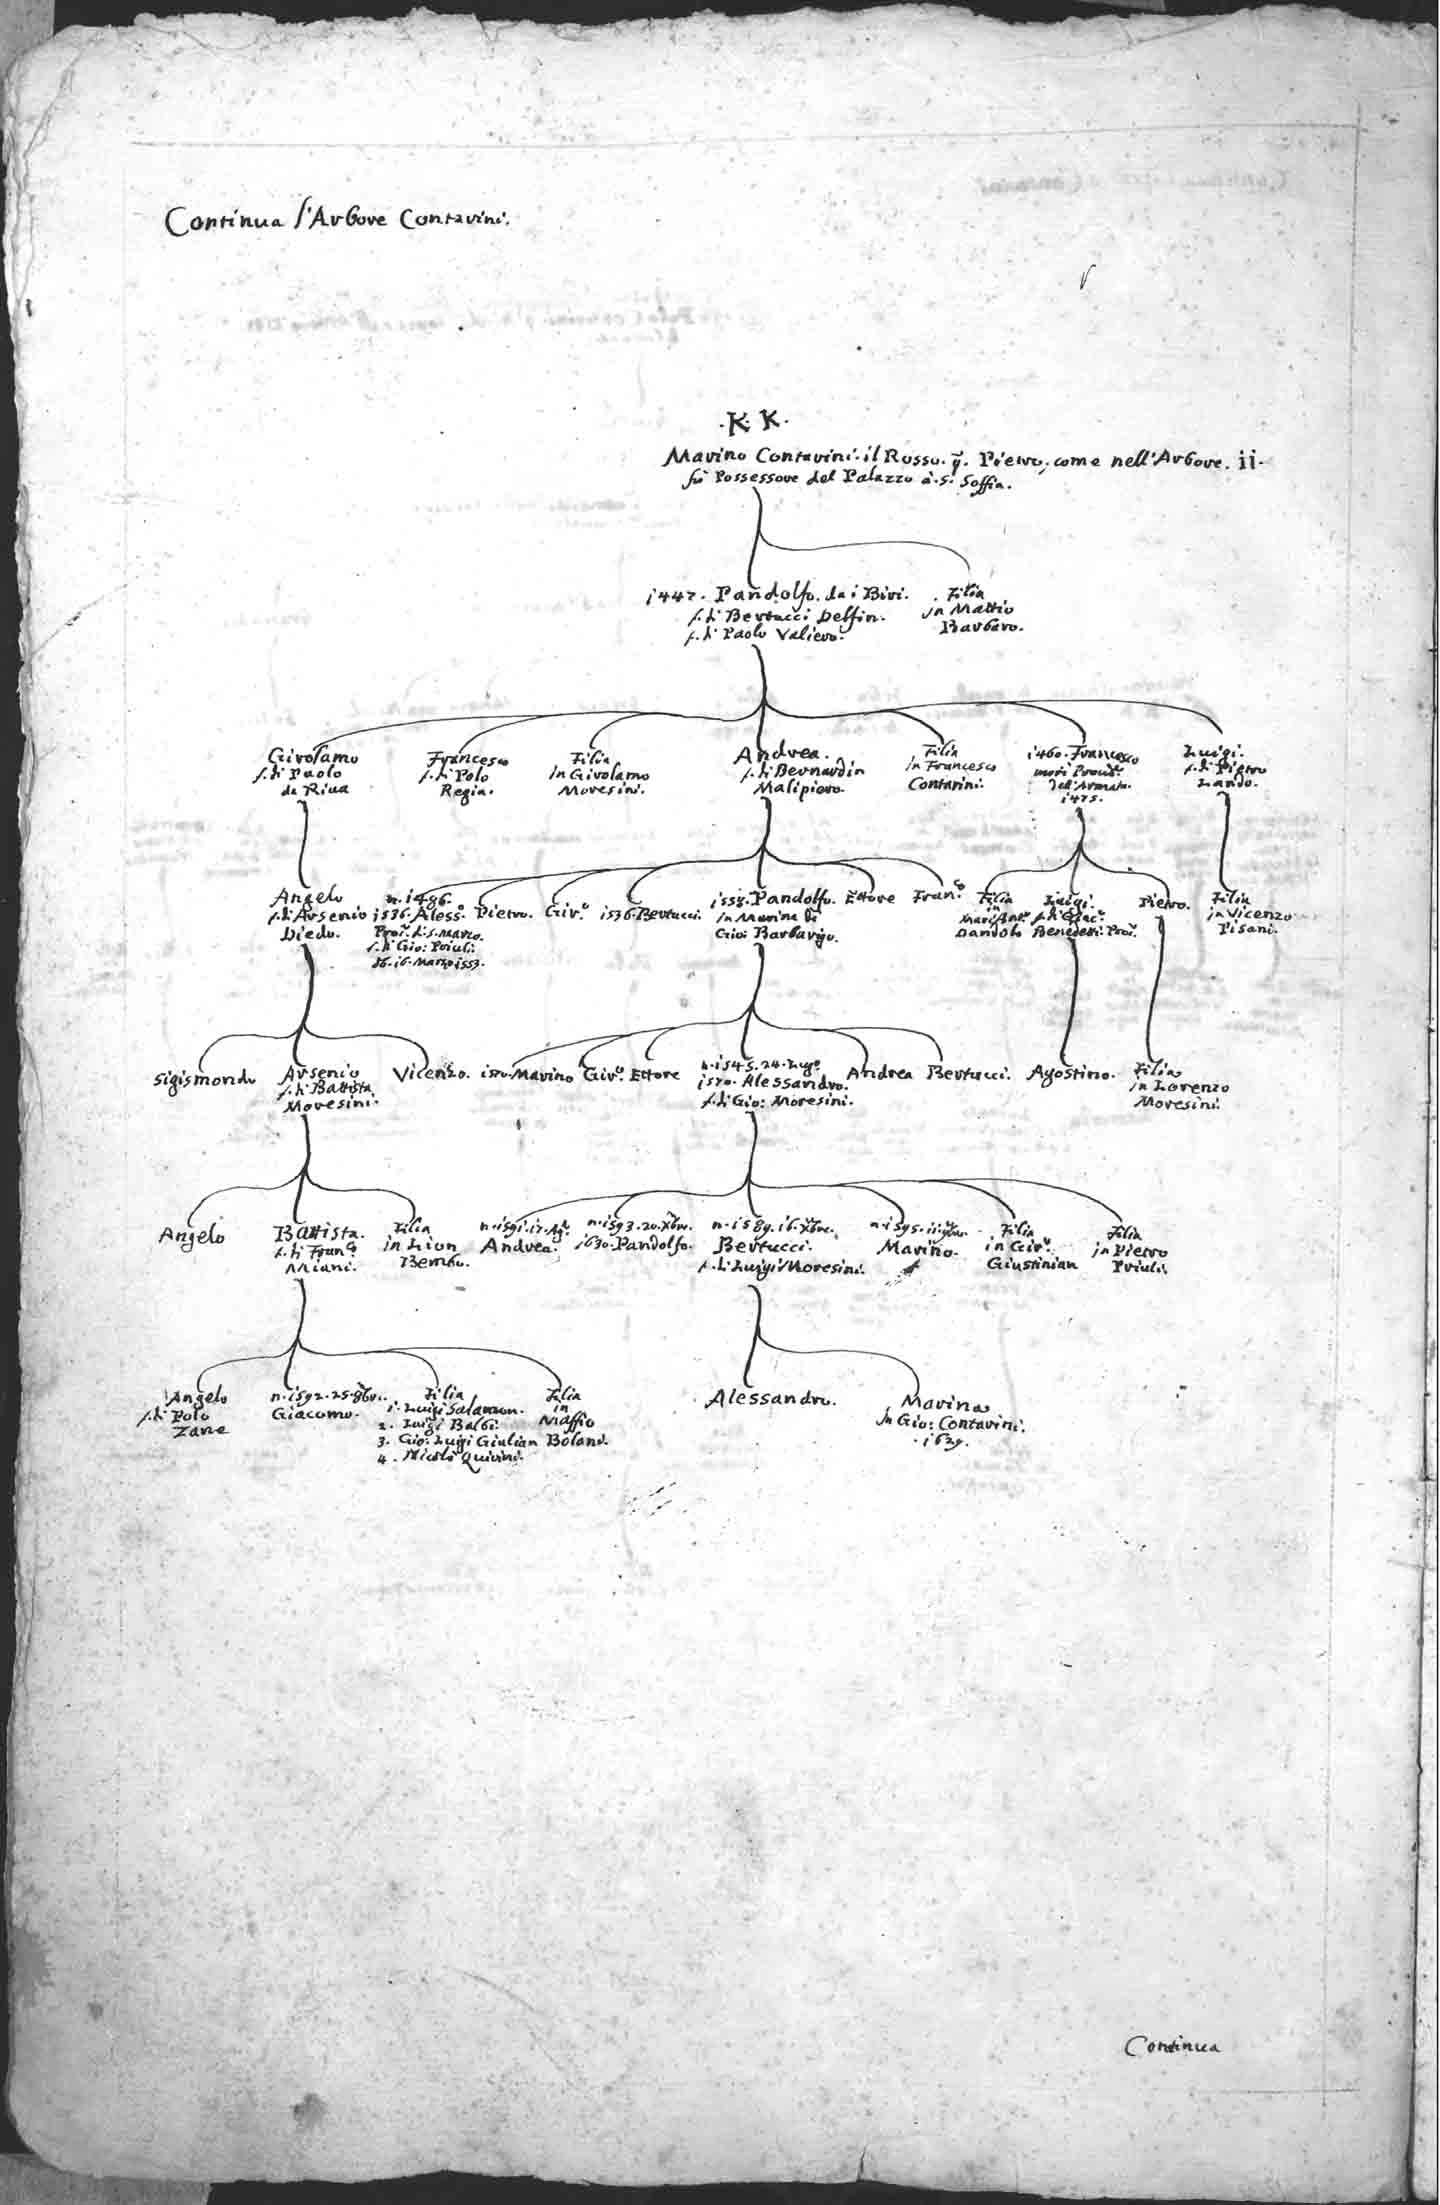 Continua l'Arbore Contarini.
.K. K.
Marino Contarini. il Rosso. q. Pietro, come nell'Arbore. ii.
fù Possessore del Palazzo à. S. Soffia.
1447. Pandolfo. da i Biri.
f. di Bertucci Delfin.
f. di Paolo Valiero.
Filia
in Mattio
Barbaro.
Girolamo
f. di Paolo
da Riva
Francesco
f. di Polo
Regia.
Filia
in Girolamo
Moresini.
Andrea.
f. di Bernardin
Malipiero.
Filia
in Francesco
Contarini.
1460. Francesco
morì Proved.r
dell'Armata.
1475.
Luigi.
f. di Pietro
Lando.
Angelo
f. di Arsenio
Diedo.
n. 1486.
1536. Aless.o
Proc.r di S. Marco.
f. di Gio: Priuli.
16. Marzo 1553.
Pietro.
Gir.o
1536. Bertucci.
1558. Pandolfo.
in Marina di
Gio: Barbarigo.
Ettore
Fran.co
Filia
in
Marc'Ant.o
Dandolo
Luigi.
f. di Giac.o
Benedetti. Proc.r
Pietro.
Filia
in Vicenzo
Pisani.
Sigismondo
Arsenio
f. di Battista
Moresini.
Vicenzo.
1570. Marino
Gir.o
Ettore
n. 1545. 24. Lug.o
1570. Alessandro.
f. di Gio: Moresini.
Andrea
Bertucci.
Agostino.
Filia
in Lorenzo
Moresini.
Angelo
Battista.
f. di Fran.co
Miani.
Filia
in Lion
Bembo.
n. 1591. 17. Ag.o
Andrea.
n. 1593. 20. Xbre.
1630. Pandolfo.
n. 1589. 16. Xbre.
Bertucci.
f. di Luigi Moresini.
n. 1595. 11.
Marino.
Filia
in Gir.o
Giustinian
Filia
in Pietro
Priuli.
Angelo
f. di Polo
Zane
n. 1592. 25. 8bre.
Giacomo.
Filia
1. Luigi Salamon.
2. Luigi Balbi.
3. Gio: Luigi Giulian
4. Nicolò Quirini.
Filia
in
Maffio
Bolani.
Alessandro.
Marina
in Gio: Contarini.
1629.
Continua